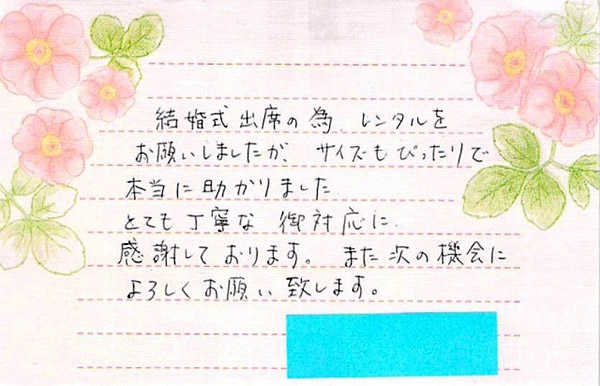 結婚式出席の為、レンタルを
お願いしましたが、サイズもぴったりで
本当に助かりました
とても丁寧な御対応に
感謝しております。また次の機会に
よろしくお願い致します。